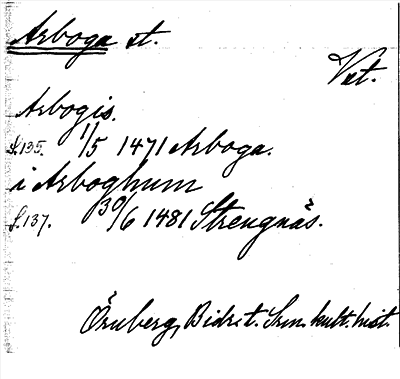 Arboga st.
Vst.
Arbogis.
S. 135. 1/5 1471 Arboga.
i Arboghum
S. 137. 30/6 1481 Strengnäs.
Örnberg, Bidr. t. Sven. kult. hist.